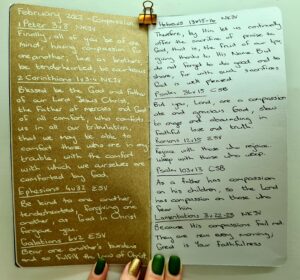 February 2023 - Compassion
1 Peter 3:8 NKJV
Finally, all of you be of one
mind, having compassion for
one another; love as brothers,
be tenderhearted, be courteous
2 Corinthians 1:3-4 NKJV
Blessed be the God and Father
of our Lord Jesus Christ,
the Father of mercies and God
of all comfort, who comforts
us in all our tribulation,
that we may be able to
comfort those who are in any
trouble, with the comfort
with which we ourselves are
comforted by God.
Ephesians 4:32 ESV
Be kind to one another,
tenderhearted, forgiving one
another, as God in Christ
forgave you.
Galatians 6:2 ESV
Bear one another's burdens
and so fulfill the law of Christ
Hebrews 13:15-16 NKJV
Therefore, by Him let us continually
offer the sacrifice of praise to
God, that is, the fruit of our lips,
giving thanks to His name. But
do not forget to do good and to
share, for with such sacrifices
God is well pleased.
Psalms 86:15 CSB
But you, Lord, are a compassionate
and gracious God, slow
to anger and abounding in
faithful love and truth.
Romans 12:15 ESV
Rejoice with those who rejoice,
weep with those who weep.
Psalm 103:13 CSB
As a father has compassion
on his children, so the Lord
has compassion on those who
fear him.
Lamentations 3:22-23 NKJV
Because His compassions fail not.
They are new every morning;
Great is Your faithfulness